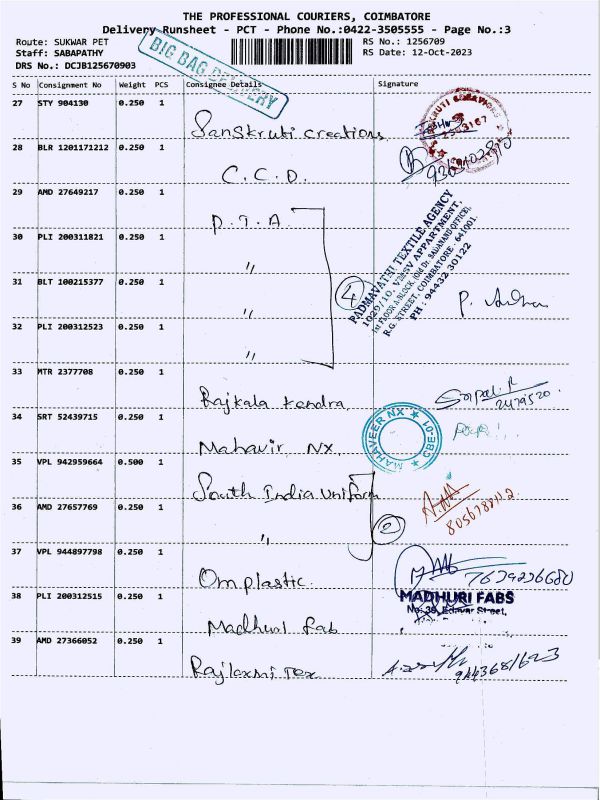 THE PROFESSIONAL COURIERS, COIMBATORE
Delivery Runsheet - PCT - Phone No.:0422-3505555 - Page No.:3
Route: SUKWAR PET
RS No.: 1256709
Staff: SABAPATHY
RS Date: 12-Oct-2023
DRS No.: DCJB125670903
BIG BAG DELIVERY
S No Consignment No Weight PCS Consignee Details Signature
27 STY 904130 0.250 1
Sanskruti Creations
28 BLR 1201171212 0.250 1
C.C.D.
29 AMD 27649217 0.250 1
P.T.A.
30 PLI 200311821 0.250 1
"
31 BLT 100215377 0.250 1
"
32 PLI 200312523 0.250 1
"
4
PADMAVATHI TEXTILE AGENCY
1029/10, VMSV APPARTMENT,
R.G. STREET, COIMBATORE - 641001.
PH : 94432 30122
33 MTR 2377708 0.250 1
Rajkala Kendra
34 SRT 52439715 0.250 1
Mahavir NX.
MAHAVEER NX
CBE-01
35 VPL 942959664 0.500 1
South India Uniform
36 AMD 27657769 0.250 1
"
2
37 VPL 944897798 0.250 1
Om plastic.
7639236680
38 PLI 200312515 0.250 1
Madhuri Fab
MADHURI FABS
No. 38, Edayar Street,
39 AMD 27366052 0.250 1
Rajlaxmi Tex
9443681623